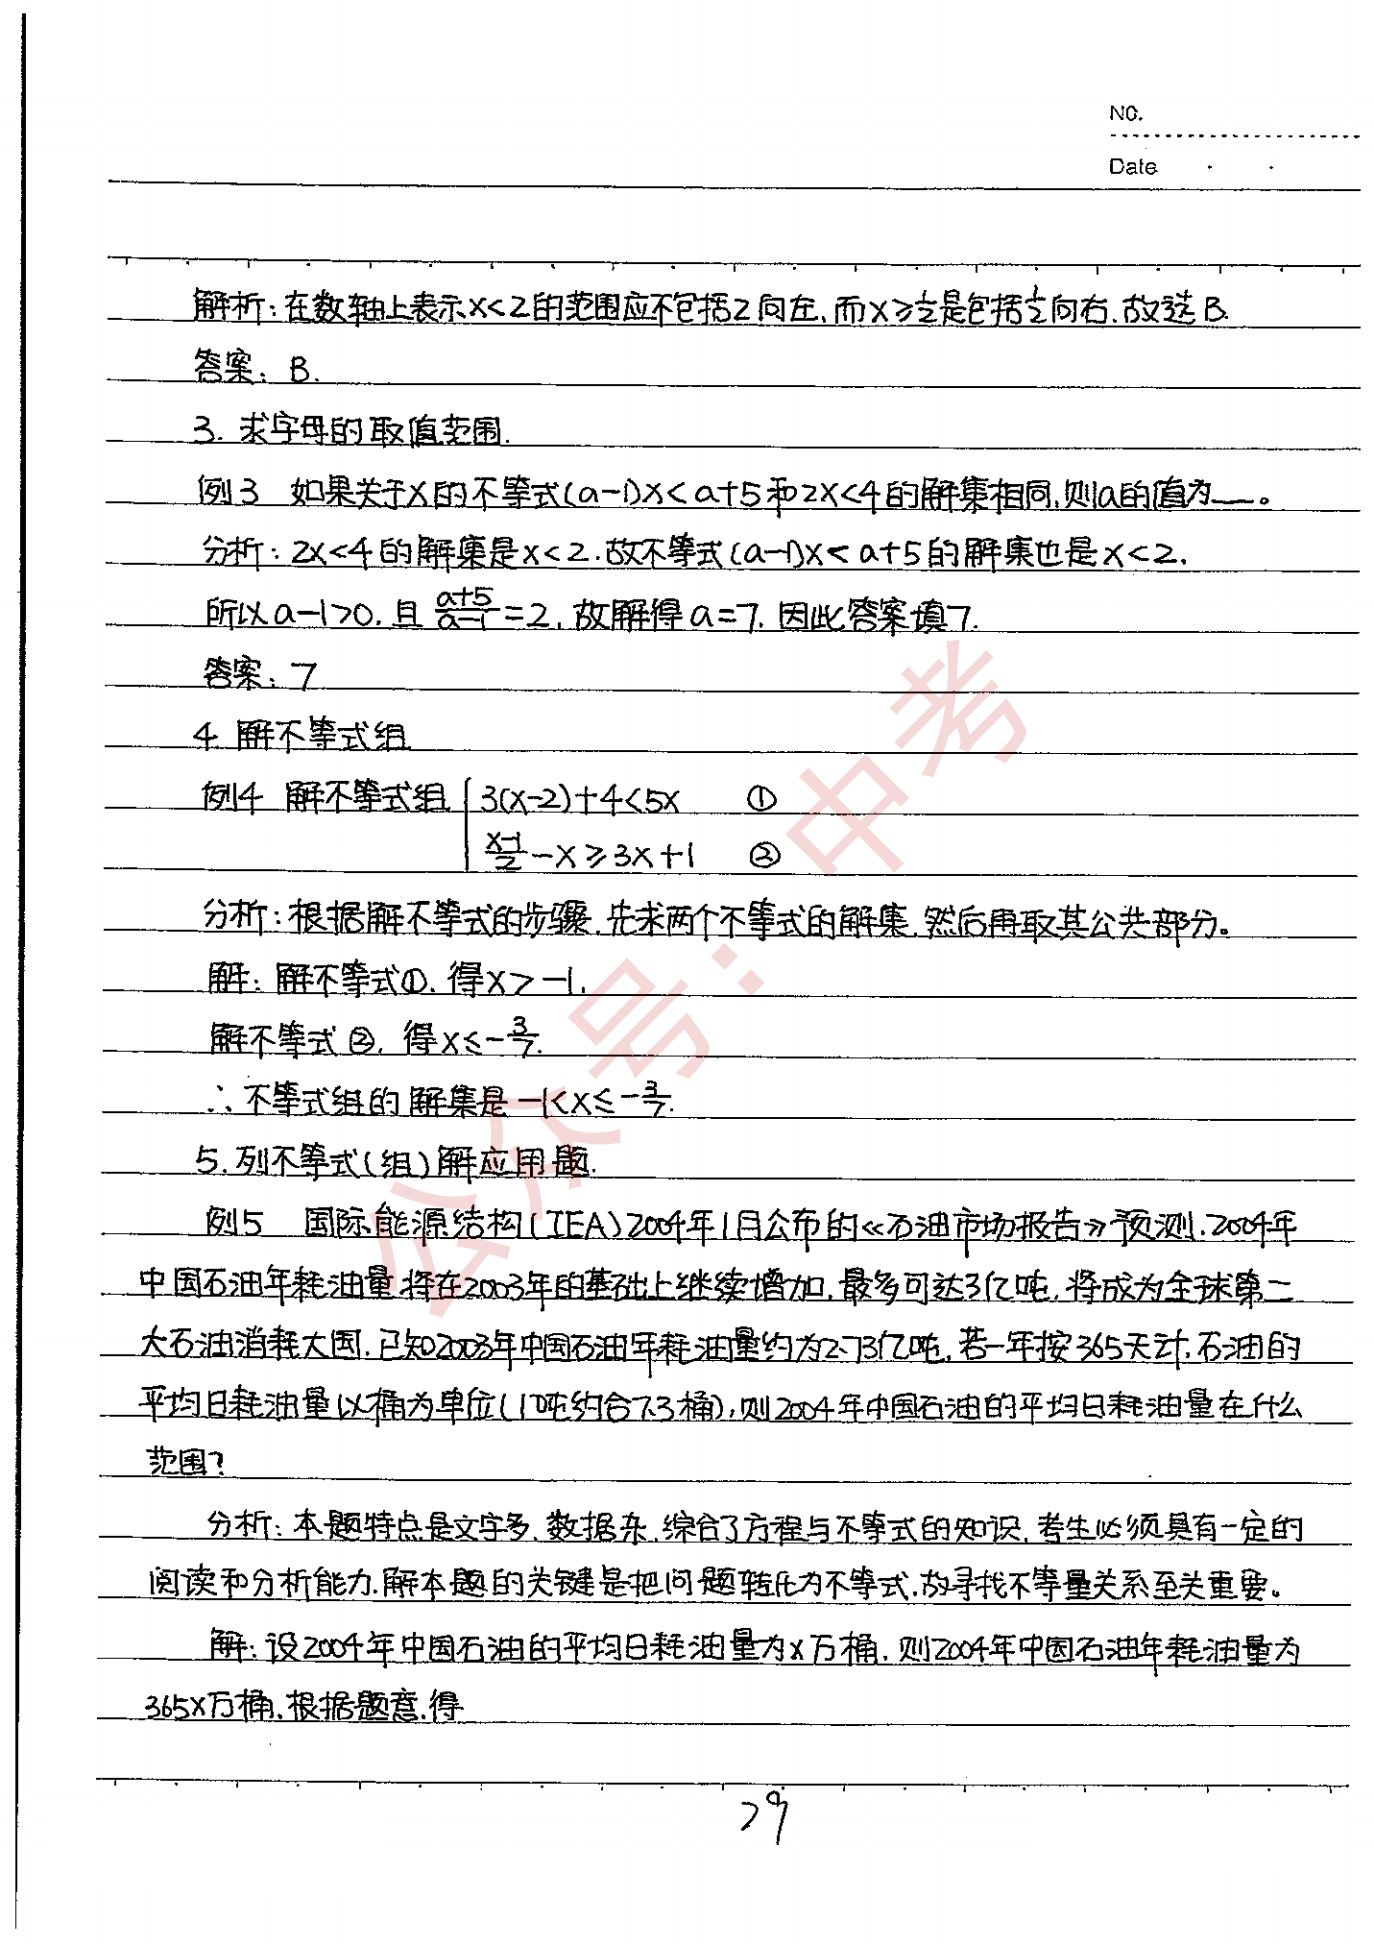 NO.
Date
解析：在数轴上表示x<2的范围应不包括2向左，而x≥½是包括½向右.故选B.
答案：B.
3. 求字母的取值范围.
例3 如果关于x的不等式(a-1)x<a+5和2x<4的解集相同,则a的值为__。
分析：2x<4的解集是x<2.故不等式(a-1)x<a+5的解集也是x<2.
所以a-1>0.且(a+5)/(a-1)=2，故解得a=7.因此答案填7.
答案：7
4 解不等式组
例4 解不等式组 { 3(x-2)+4<5x ①
(x-1)/2-x≥3x+1 ②
分析：根据解不等式的步骤,先求两个不等式的解集,然后再取其公共部分。
解：解不等式①，得x>-1.
解不等式②，得x≤-3/7.
∴不等式组的解集是-1<x≤-3/7.
5.列不等式(组)解应用题.
例5 国际能源结构(IEA)2004年1月公布的《石油市场报告》预测,2004年
中国石油年耗油量将在2003年的基础上继续增加,最多可达3亿吨,将成为全球第二
大石油消耗大国.已知2003年中国石油年耗油量约为2.73亿吨,若一年按365天计,石油的
平均日耗油量以桶为单位(1吨约合7.3桶),则2004年中国石油的平均日耗油量在什么
范围?
分析：本题特点是文字多,数据杂,综合了方程与不等式的知识,考生必须具有一定的
阅读和分析能力.解本题的关键是把问题转化为不等式,故寻找不等量关系至关重要。
解：设2004年中国石油的平均日耗油量为x万桶,则2004年中国石油年耗油量为
365x万桶,根据题意,得
29
公众号：中考